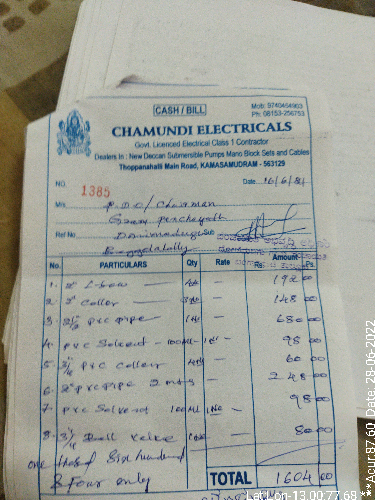 CASH / BILL
Mob: 9740464903
Ph: 08153-256753
CHAMUNDI ELECTRICALS
Govt. Licenced Electrical Class 1 Contractor
Dealers In : New Deccan Submersible Pumps Mano Block Sets and Cables
Thoppanahalli Main Road, KAMASAMUDRAM - 563129
NO. 1385 Date 16/6/21
M/s P.D.O/Chairman
Gram panchayath
Ref No Sub
No. PARTICULARS Qty Rate Amount
Rs. Ps.
1. 2" L-bow 192.00
2. 2" Coller 148.00
3. 2 1/2 pvc pipe 680.00
4. pvc Solvent - 100ML 98.00
5. pvc Coller 60.00
6. 2" pvc pipe 2 mts 248.00
7. pvc Solvent 100ML 1No 98.00
8. Ball Valve 80.00
one thosd Six hundred
& four only
TOTAL 1604.00
Lat Lon-13.00:77.68 ***Acur 87.60 Date: 28-06-2022